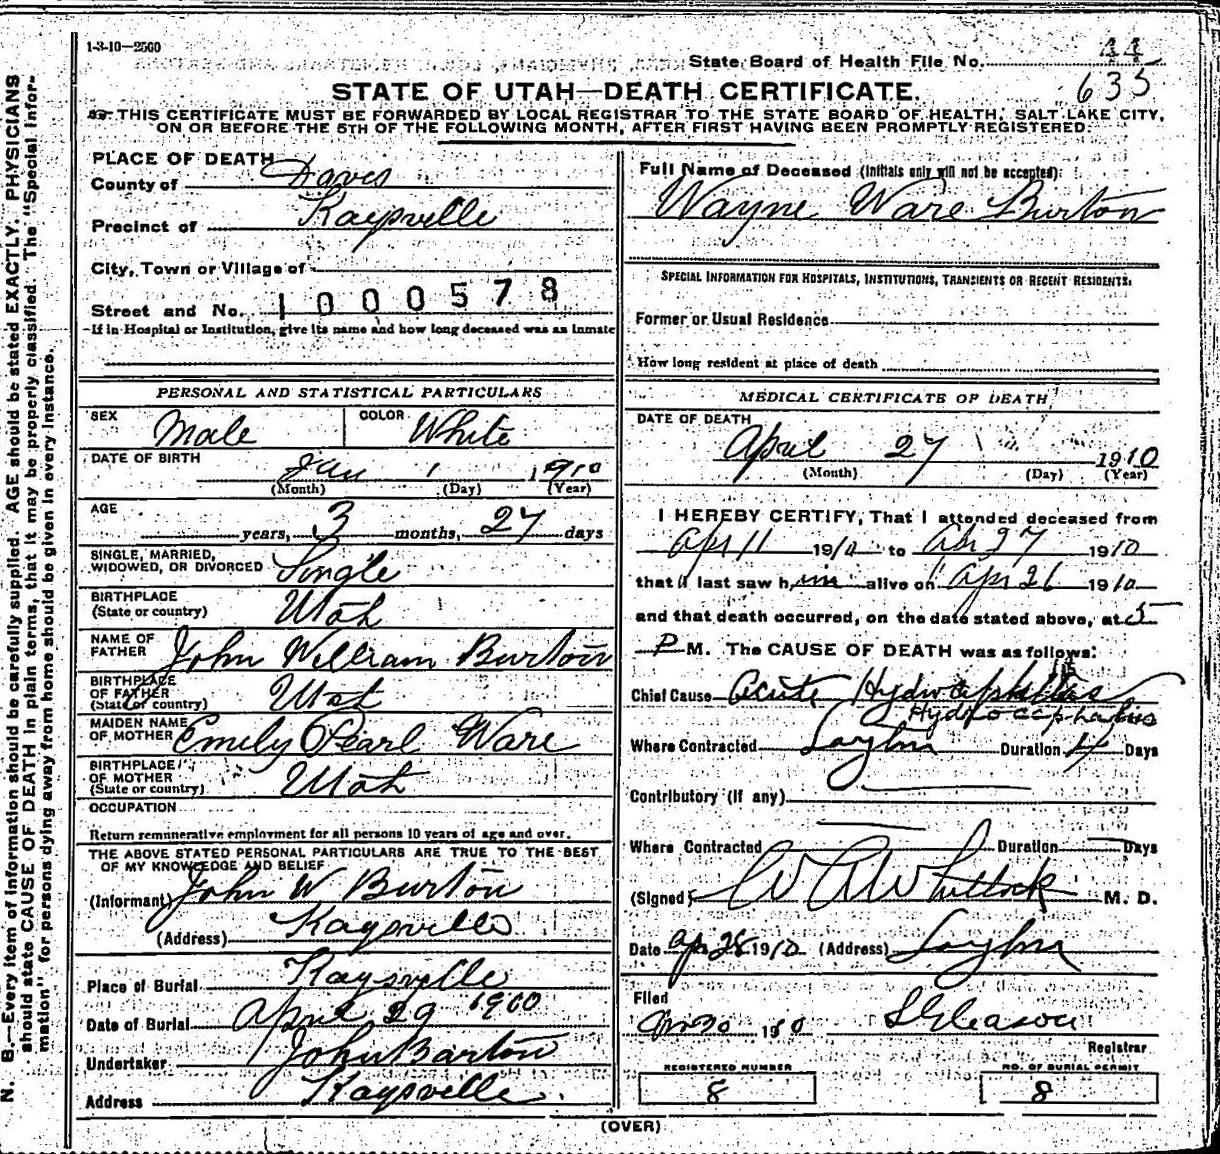 1-3-10—2500
State Board of Health File No. 44
635
STATE OF UTAH—DEATH CERTIFICATE.
THIS CERTIFICATE MUST BE FORWARDED BY LOCAL REGISTRAR TO THE STATE BOARD OF HEALTH, SALT LAKE CITY,
ON OR BEFORE THE 5TH OF THE FOLLOWING MONTH, AFTER FIRST HAVING BEEN PROMPTLY REGISTERED.
PLACE OF DEATH
County of Davis
Precinct of Kaysville
City, Town or Village of
Street and No. 1000578
If in Hospital or Institution, give its name and how long deceased was an inmate
PERSONAL AND STATISTICAL PARTICULARS
SEX Male COLOR White
DATE OF BIRTH
Jan 1 1910
(Month) (Day) (Year)
AGE
years, 3 months, 27 days
SINGLE, MARRIED,
WIDOWED, OR DIVORCED Single
BIRTHPLACE
(State or country) Utah
NAME OF
FATHER John William Burton
BIRTHPLACE
OF FATHER
(State or country) Utah
MAIDEN NAME
OF MOTHER Emily Pearl Ware
BIRTHPLACE
OF MOTHER
(State or country) Utah
OCCUPATION
Return remunerative employment for all persons 10 years of age and over.
THE ABOVE STATED PERSONAL PARTICULARS ARE TRUE TO THE BEST
OF MY KNOWLEDGE AND BELIEF
(Informant) John W Burton
(Address) Kaysville
Place of Burial Kaysville
Date of Burial April 29 1910
Undertaker John Barton
Address Kaysville
Full Name of Deceased (Initials only will not be accepted):
Wayne Ware Burton
SPECIAL INFORMATION FOR HOSPITALS, INSTITUTIONS, TRANSIENTS OR RECENT RESIDENTS.
Former or Usual Residence
How long resident at place of death
MEDICAL CERTIFICATE OF DEATH
DATE OF DEATH
April 27 1910
(Month) (Day) (Year)
I HEREBY CERTIFY, That I attended deceased from
Apr 11 1910 to Apr 27 1910
that I last saw him alive on Apr 26 1910
and that death occurred, on the date stated above, at 5
P M. The CAUSE OF DEATH was as follows:
Chief Cause Acute Hydrocephalus
Hydrocephalus
Where Contracted Layton Duration 4 Days
Contributory (if any)
Where Contracted Duration Days
(Signed) W A Whitlock M. D.
Date Apr 28 1910 (Address) Layton
Filed
Apr 30 1910 S Gleason
Registrar
REGISTERED NUMBER NO. OF BURIAL PERMIT
8 8
(OVER)
N. B.—Every item of information should be carefully supplied. AGE should be stated EXACTLY. PHYSICIANS
should state CAUSE OF DEATH in plain terms, that it may be properly classified. The "Special Infor-
mation" for persons dying away from home should be given in every instance.